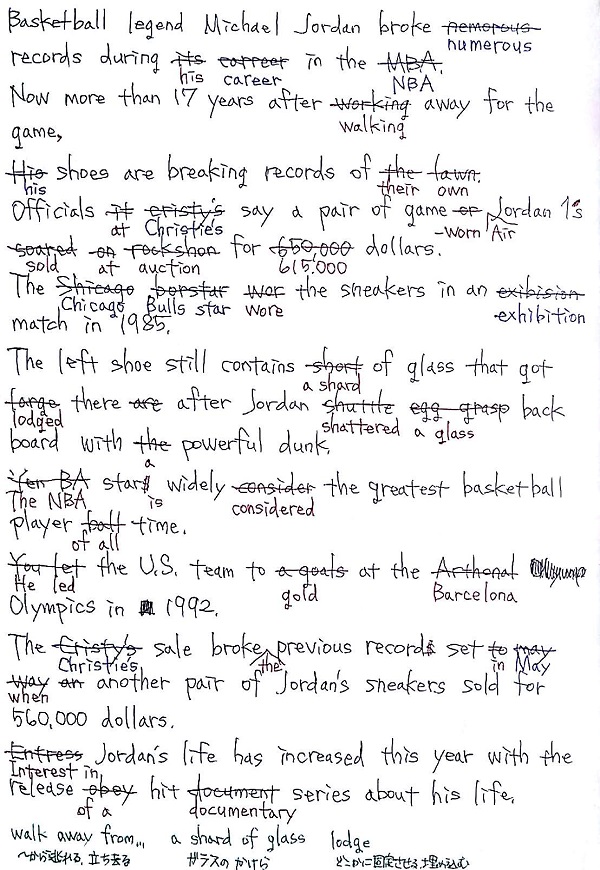 Basketball legend Michael Jordan broke nemorous
numerous
records during its carreer in the MBA.
his career NBA
Now more than 17 years after working away for the
walking
game,
His shoes are breaking records of the fawn.
his their own
Officials it cristy's say a pair of game or Jordan 1s
at Christie's -worn Air
soared on rockshon for 650,000 dollars.
sold at auction 615.000
The Shicago borstar wor the sneakers in an exibision
Chicago Bulls star wore exhibition
match in 1985.
The left shoe still contains short of glass that got
a shard
forge there are after Jordan shuttle egg grasp back
lodged shattered a glass
board with the powerful dunk.
a
Yen BA stars widely consider the greatest basketball
The NBA is considered
player ball time.
of all
You let the U.S. team to a goals at the Arthonal
He led gold Barcelona
Olympics in 1992.
The Cristy's sale broke previous records set to may
Christie's the in May
way an another pair of Jordan's sneakers sold for
when
560,000 dollars.
Entress Jordan's life has increased this year with the
Interest in
release obey hit document series about his life.
of a documentary
walk away from... a shard of glass lodge
〜から逃れる、立ち去る ガラスのかけら どこかに固定させる、埋め込む